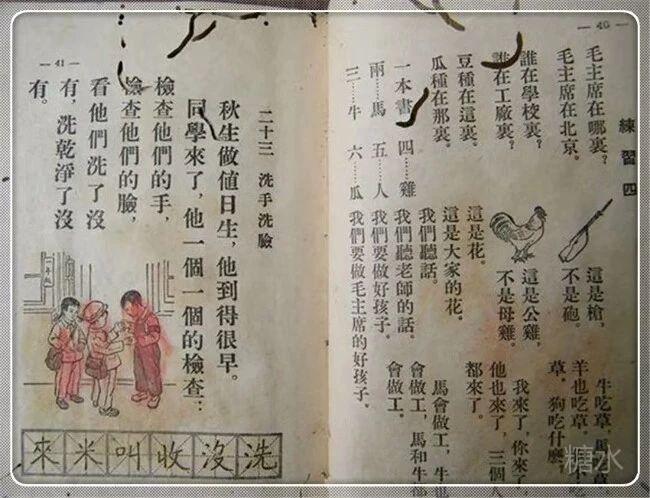 — 40 —
練習四
毛主席在哪裏?
毛主席在北京。
誰在學校裏?
誰在工廠裏?
豆種在這裏。
瓜種在那裏。
一本書 四……雞
兩……馬 五……人
三……牛 六……瓜
這是槍,
不是砲。
這是公雞,
不是母雞。
這是花。
這是大家的花。
我們聽話。
我們聽老師的話。
我們要做好孩子。
我們要做毛主席的好孩子。
牛吃草,馬
羊也吃草,
草,狗吃什麽
我來了,你來了
他也來了,三個
都來了。
馬會做工,牛也
會做工,馬和牛都
會做工。
— 41 —
二十三 洗手洗臉
秋生做値日生,他到得很早。
同學來了,他一個一個的檢查:
檢查他們的手,
檢查他們的臉,
看他們洗了沒
有,洗乾淨了沒
有。
一年級
洗沒收叫米來
糖水